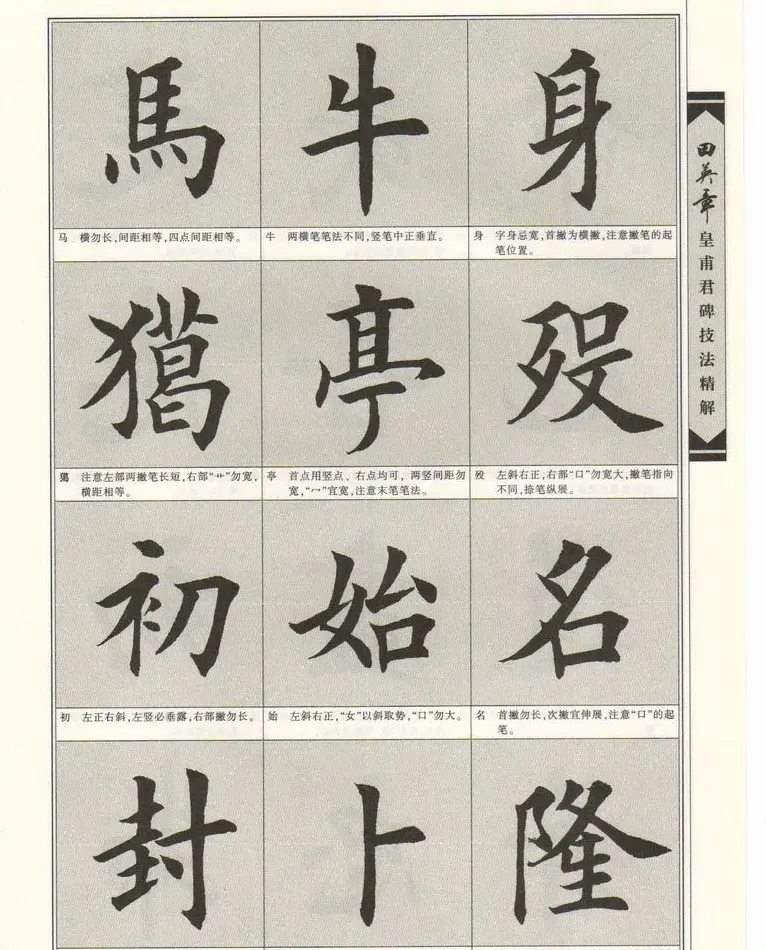 馬 牛 身
马 横勿长,间距相等,四点间距相等。
牛 两横笔笔法不同,竖笔中正垂直。
身 字身忌宽,首撇为横撇,注意撇笔的起
笔位置。
亭 殁
注意左部两撇笔长短,右部“艹”勿宽,
横距相等。
亭 首点用竖点、右点均可,两竖间距勿
宽,“冖”宜宽,注意末笔笔法。
殁 左斜右正,右部“口”勿宽大,撇笔指向
不同,捺笔纵展。
初 始 名
初 左正右斜,左竖必垂露,右部撇勿长。
始 左斜右正,“女”以斜取势,“口”勿大。
名 首撇勿长,次撇宜伸展,注意“口”的起
笔。
封 卜 隆
田英章
皇甫君碑技法精解